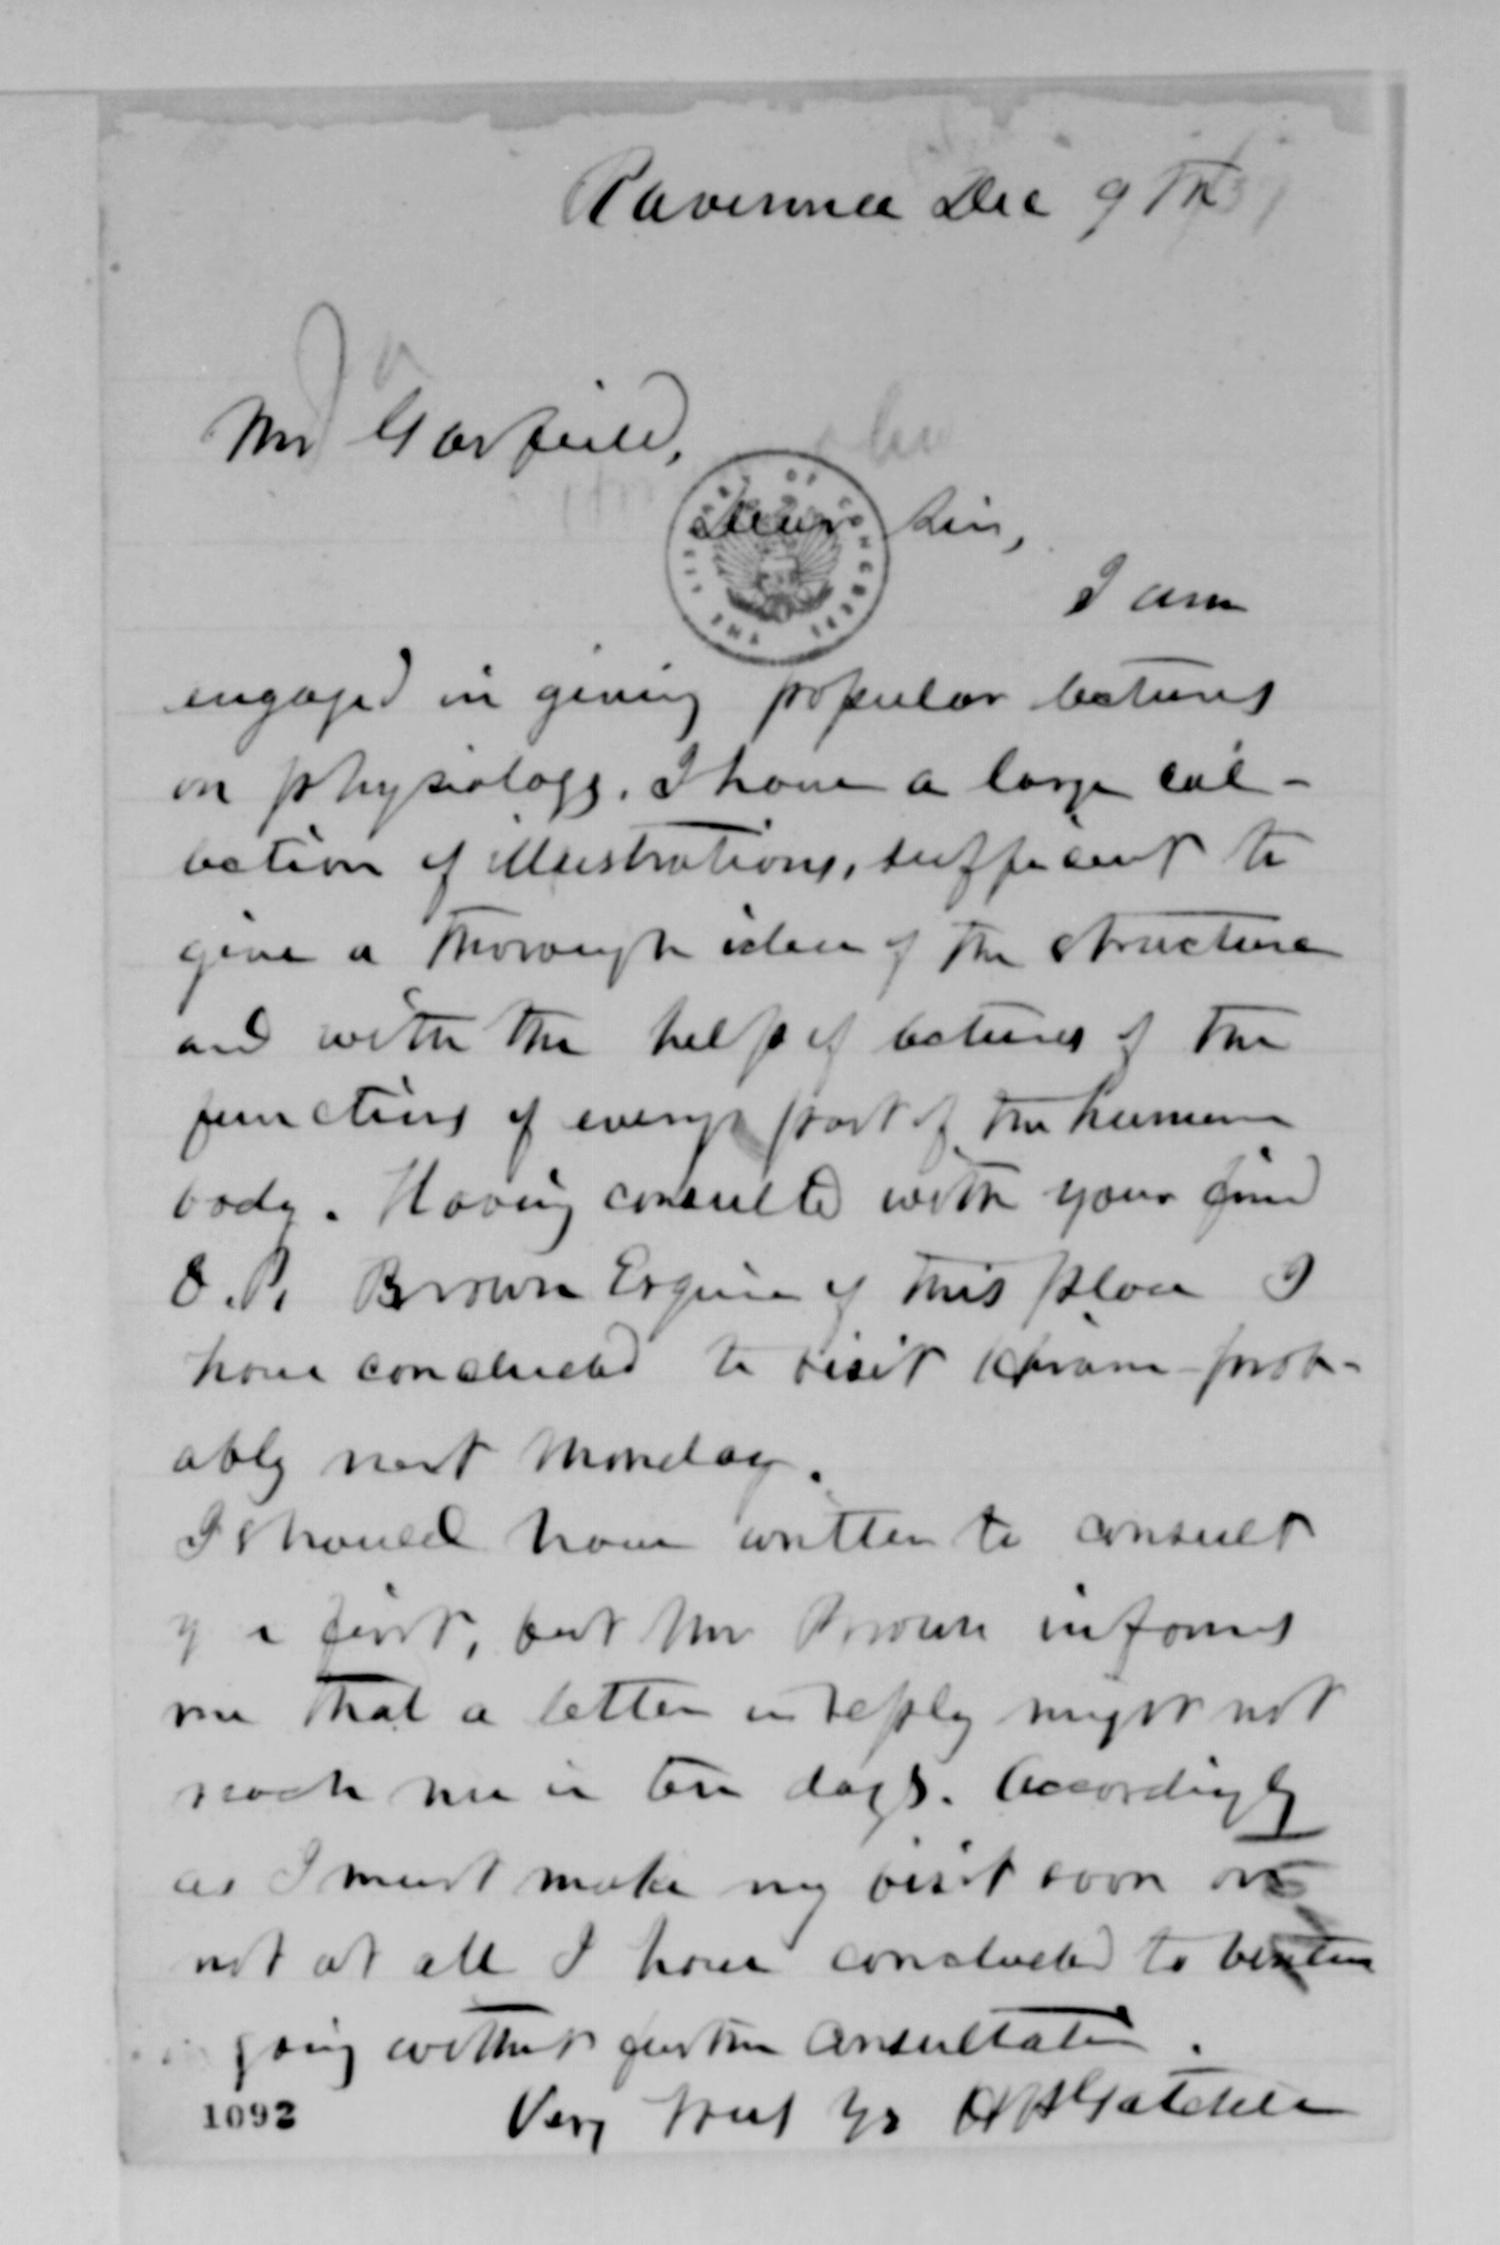 Ravenna Dec 9th
Mr Garfield,
Dear Sir,
THE LIBRARY OF CONGRESS
I am
engaged in giving popular lectures
on physiology. I have a large col-
lection of illustrations, sufficient to
give a thorough idea of the structure
and with the help of lectures of the
functions of every part of the human
body. Having consulted with your friend
O.P. Brown Esquire of this place I
have concluded to visit Hiram prob-
ably next Monday.
I should have written to consult
you first, but Mr Brown informs
me that a letter in reply might not
reach me in ten days. Accordingly
as I must make my visit soon or
not at all I have concluded to venture
going without further consultation.
Very truly yrs H P Gatchell
1092